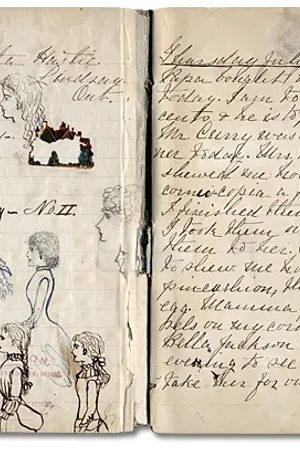 Hastie
Lindsay
Out.
y - No II.
Thursday Jul
Papa bought
today. I am to
cents & he is to
Mr. Curry was
her today. Mrs.
shewed me ho
cornucopia a
I finished the
I took them o
them to her.
to show me h
pincushion, th
egg. Mamma
sels on my corn
Bella Jackson
evening to see
take her for